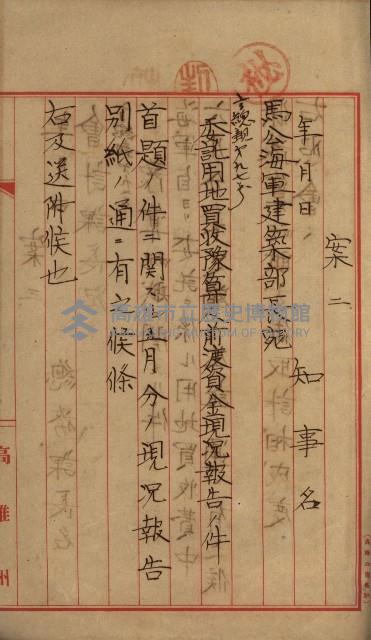 案二
知事名
年月日
馬公海軍建築部長宛
委託用地買收豫算前渡資金現況報告ノ件
首題ノ件ニ関スル五月分ノ現況報告
別紙ノ通ニ有之候條
右及送附候也
高雄州
高雄市立歷史博物館